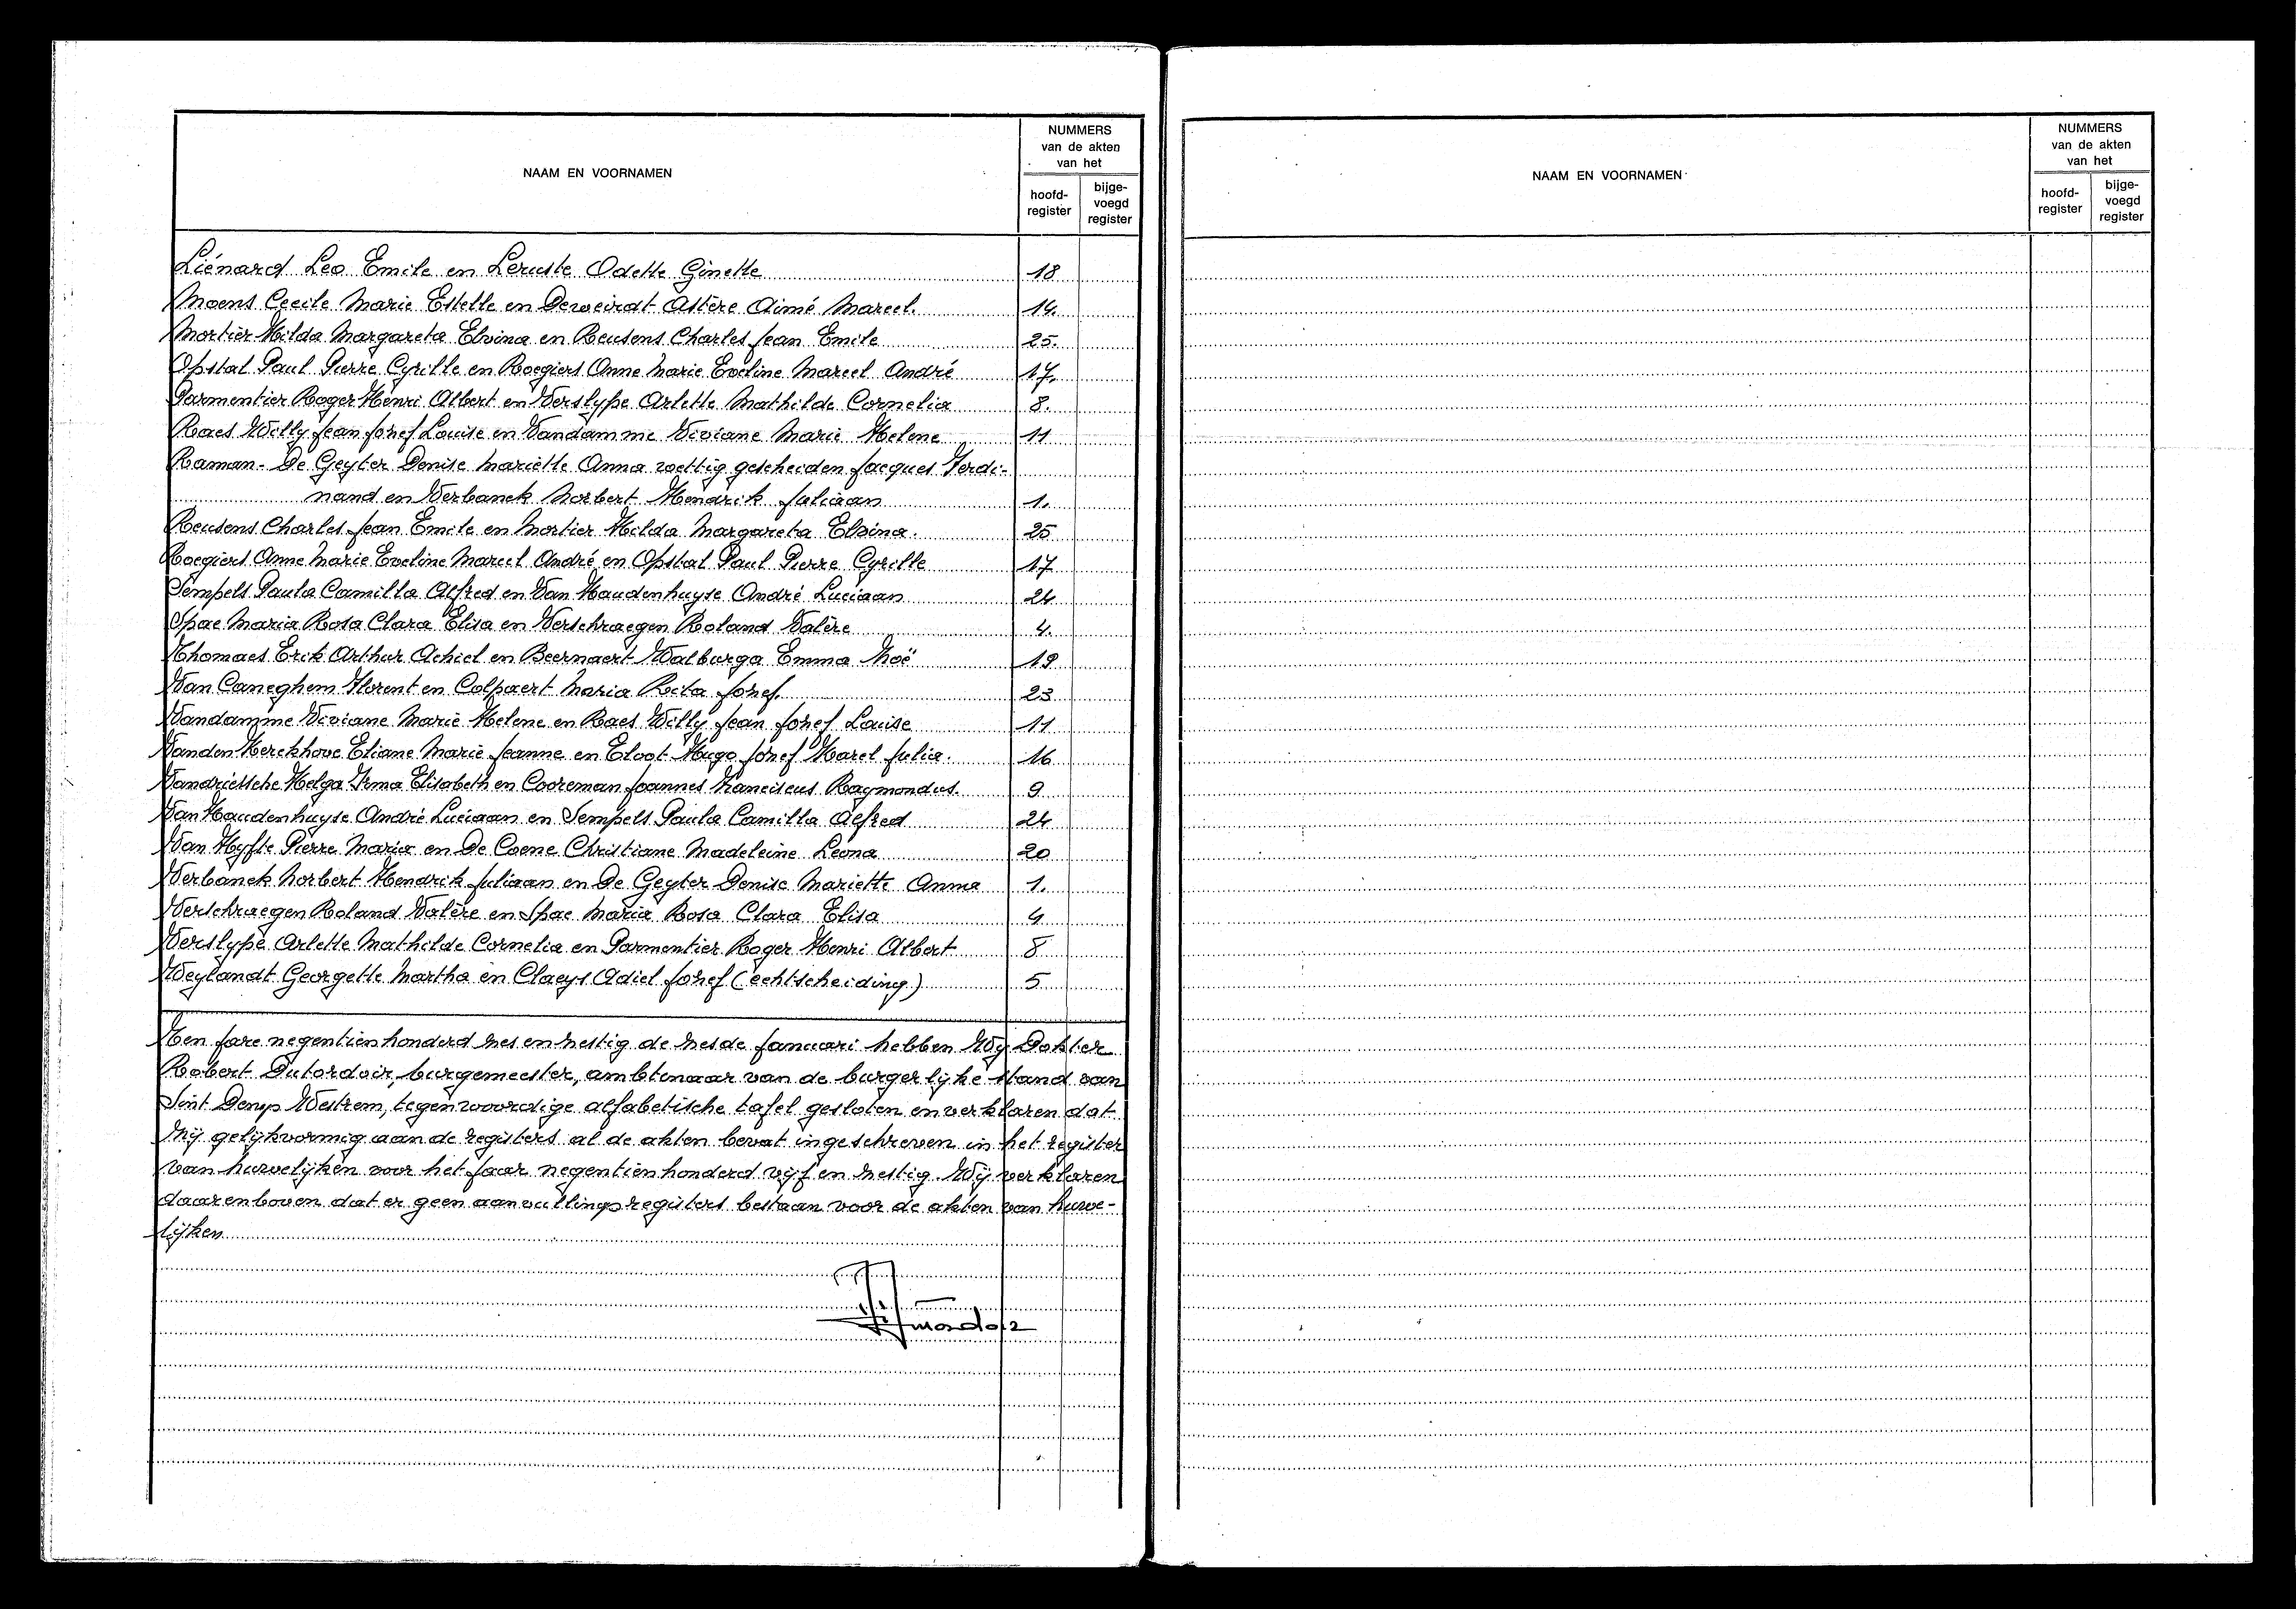 NAAM EN VOORNAMEN
NUMMERS
van de akten
van het
hoofd-
register
bijge-
voegd
register
Liénard Leo Emile en Leruste Odette Ginette 18
Moens Cecile Marie Estelle en Deweirdt Astère Aimé Marcel. 14.
Mortier Hilda Margareta Elvina en Reusens Charles Jean Emile 25.
Opstal Paul Pierre Cyrille en Roegiers Anne Marie Eveline Marcel André 17.
Parmentier Roger Henri Albert en Verslype Arlette Mathilde Cornelia 8.
Raes Willy Jean Jozef Louise en Vandamme Viviane Marie Helene 11
Raman - De Geyter Denise Mariette Anna wettig gescheiden Jacques Ferdi-
nand en Verbanck Norbert Hendrik Juliaan 1.
Reusens Charles Jean Emile en Mortier Hilda Margareta Elvina. 25
Roegiers Anne Marie Eveline Marcel André en Opstal Paul Pierre Cyrille 17
Sempels Paula Camilla Alfred en Van Haudenhuyse André Luciaan 24
Spae Maria Rosa Clara Elisa en Verschraegen Roland Valère 4.
Thomaes Erik Arthur Achiel en Beernaert Walburga Emma Zoë 19
Van Caneghem Florent en Colpaert Maria Rita Jozef. 23
Vandamme Viviane Marie Helene en Raes Willy Jean Jozef Louise 11
Vanden Kerckhove Eliane Marie Jeanne en Eloot Hugo Jozef Karel Julia. 16
Vandriessche Helga Irma Elisabeth en Cooreman Joannes Franciscus Raymondus. 9
Van Haudenhuyse André Luciaan en Sempels Paula Camilla Alfred 24
Van Hyfte Pierre Maria en De Coene Christiane Madeleine Leona 20
Verbanck Norbert Hendrik Juliaan en De Geyter Denise Mariette Anna 1.
Verschraegen Roland Valère en Spae Maria Rosa Clara Elisa 4
Verslype Arlette Mathilde Cornelia en Parmentier Roger Henri Albert 8
Weylandt Georgette Martha en Claeys Adiel Jozef (echtscheiding) 5
Ten jare negentienhonderd zes en zestig de zesde januari hebben Wij Dokter
Robert Dutordoir, burgemeester, ambtenaar van de burgerlijke stand van
Sint Denijs Westrem, tegenwoordige alfabetische tafel gesloten en verklaren dat
zij gelijkvormig aan de registers al de akten bevat ingeschreven in het register
van huwelijken voor het jaar negentienhonderd vijf en zestig. Wij verklaren
daarenboven dat er geen aanvullingsregisters bestaan voor de akten van huwe-
lijken
NAAM EN VOORNAMEN
NUMMERS
van de akten
van het
hoofd-
register
bijge-
voegd
register